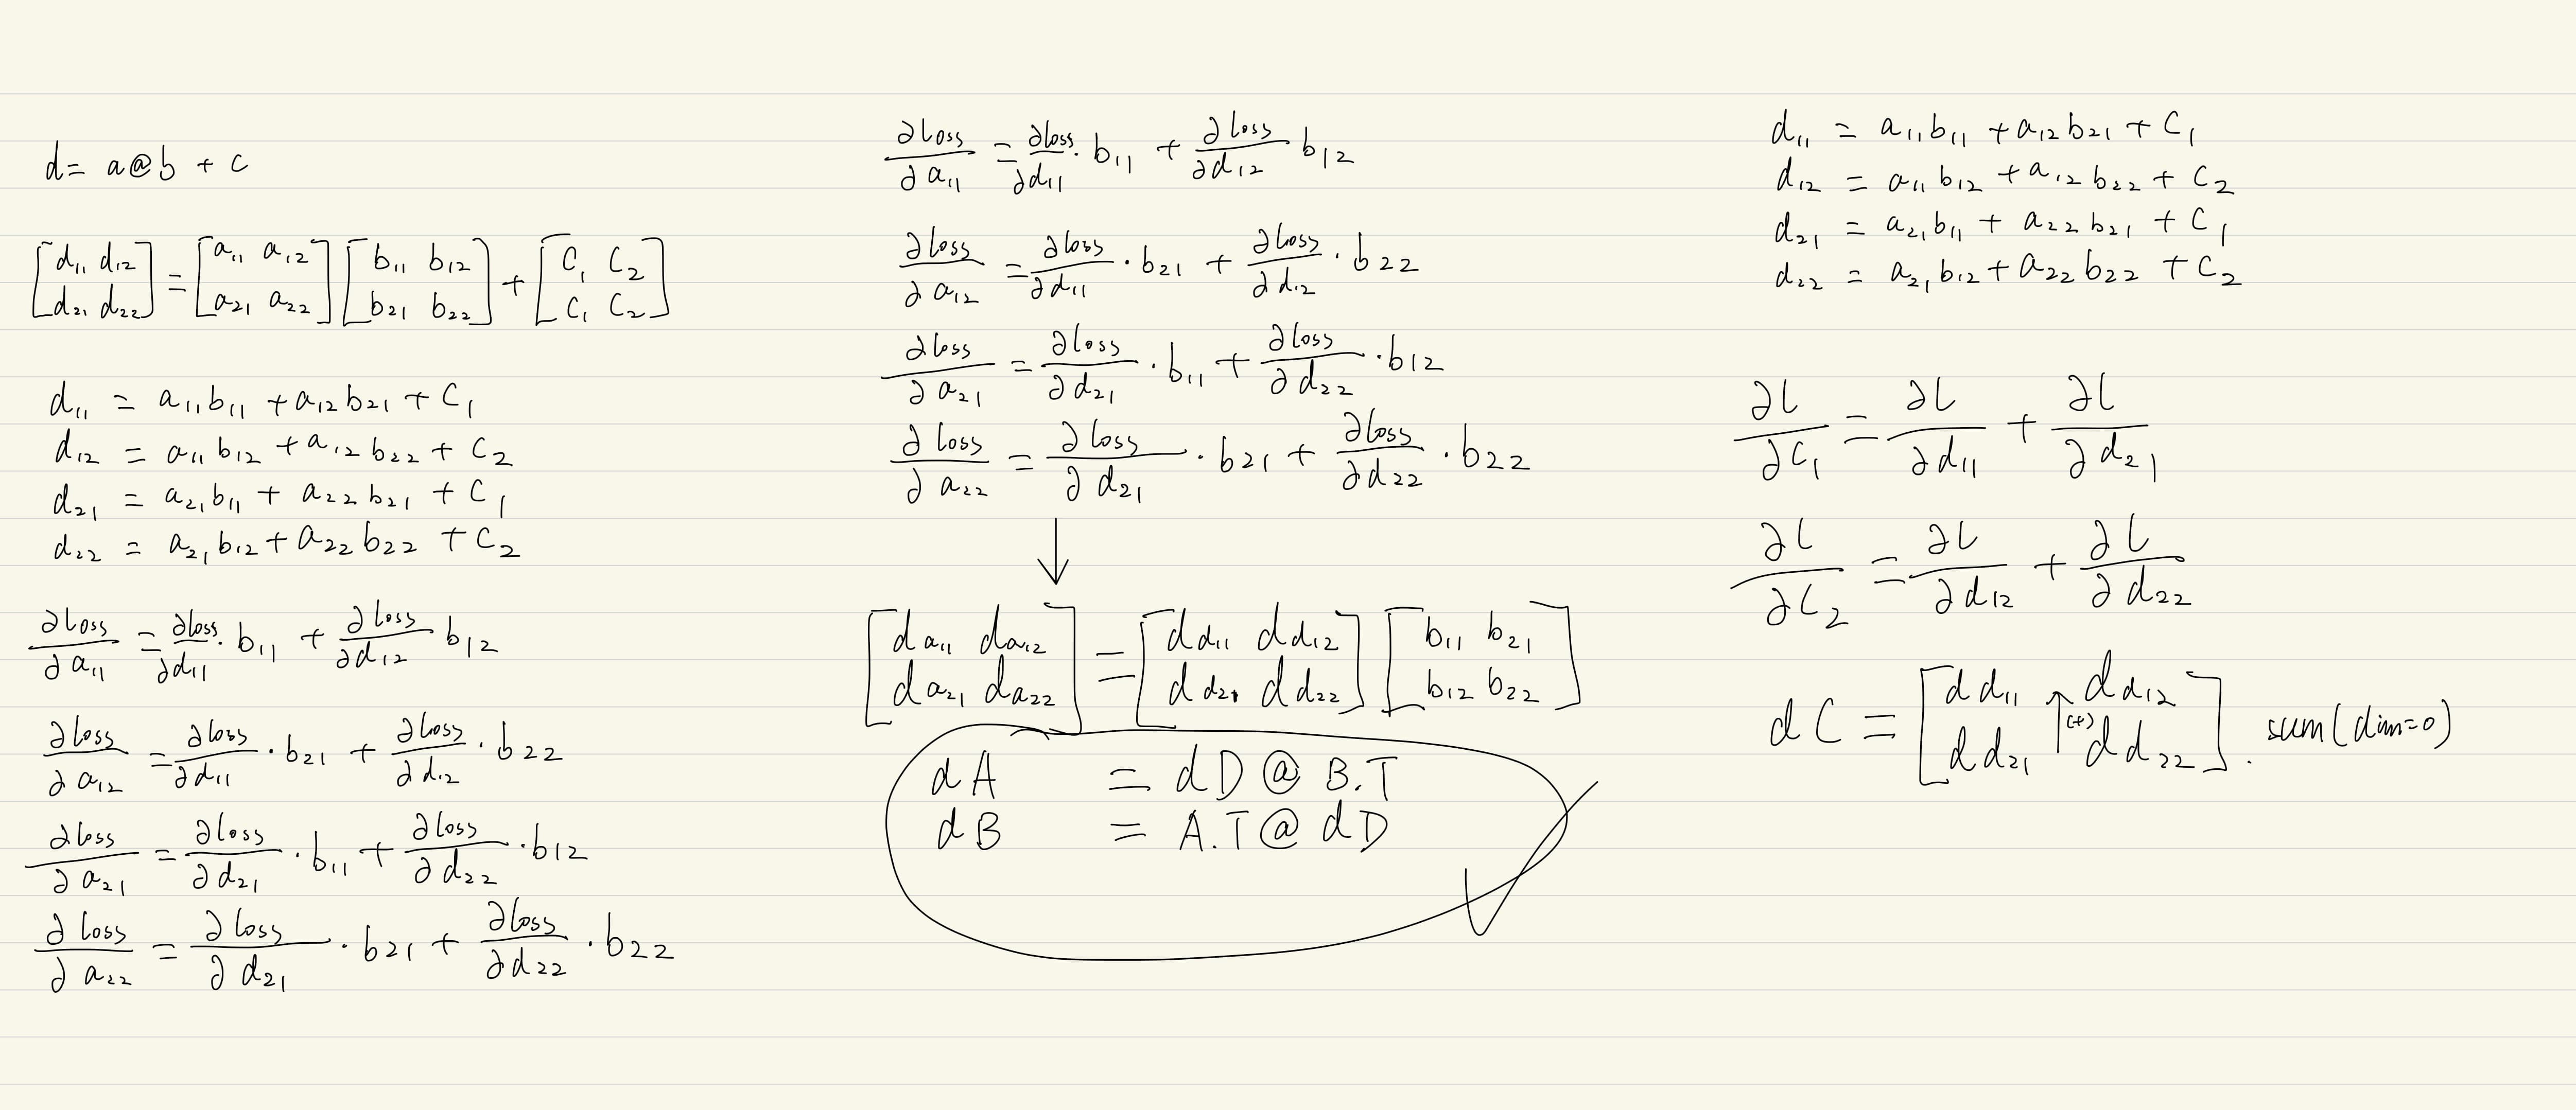 d = a@b + c
[d₁₁ d₁₂; d₂₁ d₂₂] = [a₁₁ a₁₂; a₂₁ a₂₂] [b₁₁ b₁₂; b₂₁ b₂₂] + [C₁ C₂; C₁ C₂]
d₁₁ = a₁₁b₁₁ + a₁₂b₂₁ + C₁
d₁₂ = a₁₁b₁₂ + a₁₂b₂₂ + C₂
d₂₁ = a₂₁b₁₁ + a₂₂b₂₁ + C₁
d₂₂ = a₂₁b₁₂ + a₂₂b₂₂ + C₂
∂loss/∂a₁₁ = ∂loss/∂d₁₁ · b₁₁ + ∂loss/∂d₁₂ b₁₂
∂loss/∂a₁₂ = ∂loss/∂d₁₁ · b₂₁ + ∂loss/∂d₁₂ · b₂₂
∂loss/∂a₂₁ = ∂loss/∂d₂₁ · b₁₁ + ∂loss/∂d₂₂ · b₁₂
∂loss/∂a₂₂ = ∂loss/∂d₂₁ · b₂₁ + ∂loss/∂d₂₂ · b₂₂
∂loss/∂a₁₁ = ∂loss/∂d₁₁ · b₁₁ + ∂loss/∂d₁₂ b₁₂
∂loss/∂a₁₂ = ∂loss/∂d₁₁ · b₂₁ + ∂loss/∂d₁₂ · b₂₂
∂loss/∂a₂₁ = ∂loss/∂d₂₁ · b₁₁ + ∂loss/∂d₂₂ · b₁₂
∂loss/∂a₂₂ = ∂loss/∂d₂₁ · b₂₁ + ∂loss/∂d₂₂ · b₂₂
↓
[da₁₁ da₁₂; da₂₁ da₂₂] = [dd₁₁ dd₁₂; dd₂₁ dd₂₂] [b₁₁ b₂₁; b₁₂ b₂₂]
dA = dD @ B.T
dB = A.T @ dD
d₁₁ = a₁₁b₁₁ + a₁₂b₂₁ + C₁
d₁₂ = a₁₁b₁₂ + a₁₂b₂₂ + C₂
d₂₁ = a₂₁b₁₁ + a₂₂b₂₁ + C₁
d₂₂ = a₂₁b₁₂ + a₂₂b₂₂ + C₂
∂l/∂C₁ = ∂l/∂d₁₁ + ∂l/∂d₂₁
∂l/∂C₂ = ∂l/∂d₁₂ + ∂l/∂d₂₂
dC = [dd₁₁ dd₁₂; dd₂₁ ↑(+) dd₂₂] . sum(dim=0)